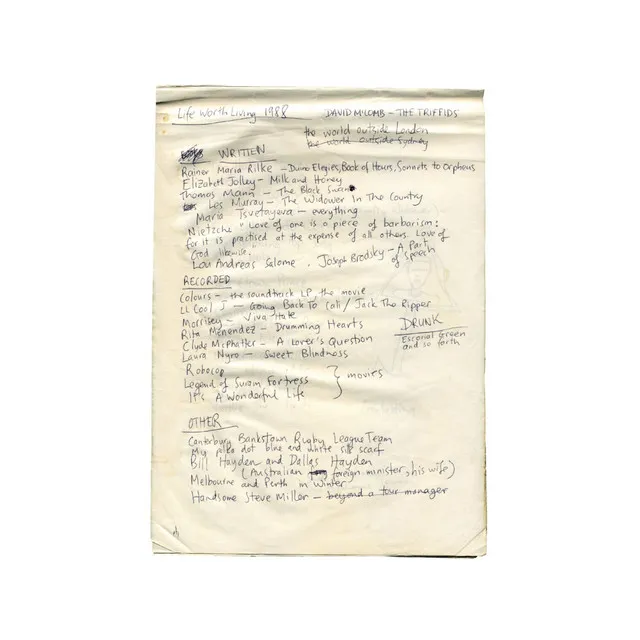 Life Worth Living 1988
DAVID McCOMB - THE TRIFFIDS
the world outside London
the world outside Sydney
WRITTEN
Rainer Maria Rilke - Duino Elegies, Book of Hours, Sonnets to Orpheus
Elizabeth Jolley - Milk and Honey
Thomas Mann - The Black Swan
Les Murray - The Widower In The Country
Maria Tsvetayeva - everything
Nietzche "Love of one is a piece of barbarism:
for it is practised at the expense of all others. Love of
God likewise.
Lou Andreas Salome. Joseph Brodsky - A Part
of Speech
RECORDED
Colours - the soundtrack LP, the movie
LL Cool J - Going Back To Cali / Jack The Ripper
Morrisey - Viva Hate
Rita Menendez - Drumming Hearts
Clyde McPhatter - A Lover's Question
Laura Nyro - Sweet Blindness
DRUNK
Escorial Green
and so forth
Robocop
Legend of Suram Fortress
It's A Wonderful Life
} movies
OTHER
Canterbury Bankstown Rugby League Team
My polka dot blue and white silk scarf
Bill Hayden and Dallas Hayden
(Australian foreign minister, his wife)
Melbourne and Perth in Winter
Handsome Steve Miller - beyond a tour manager